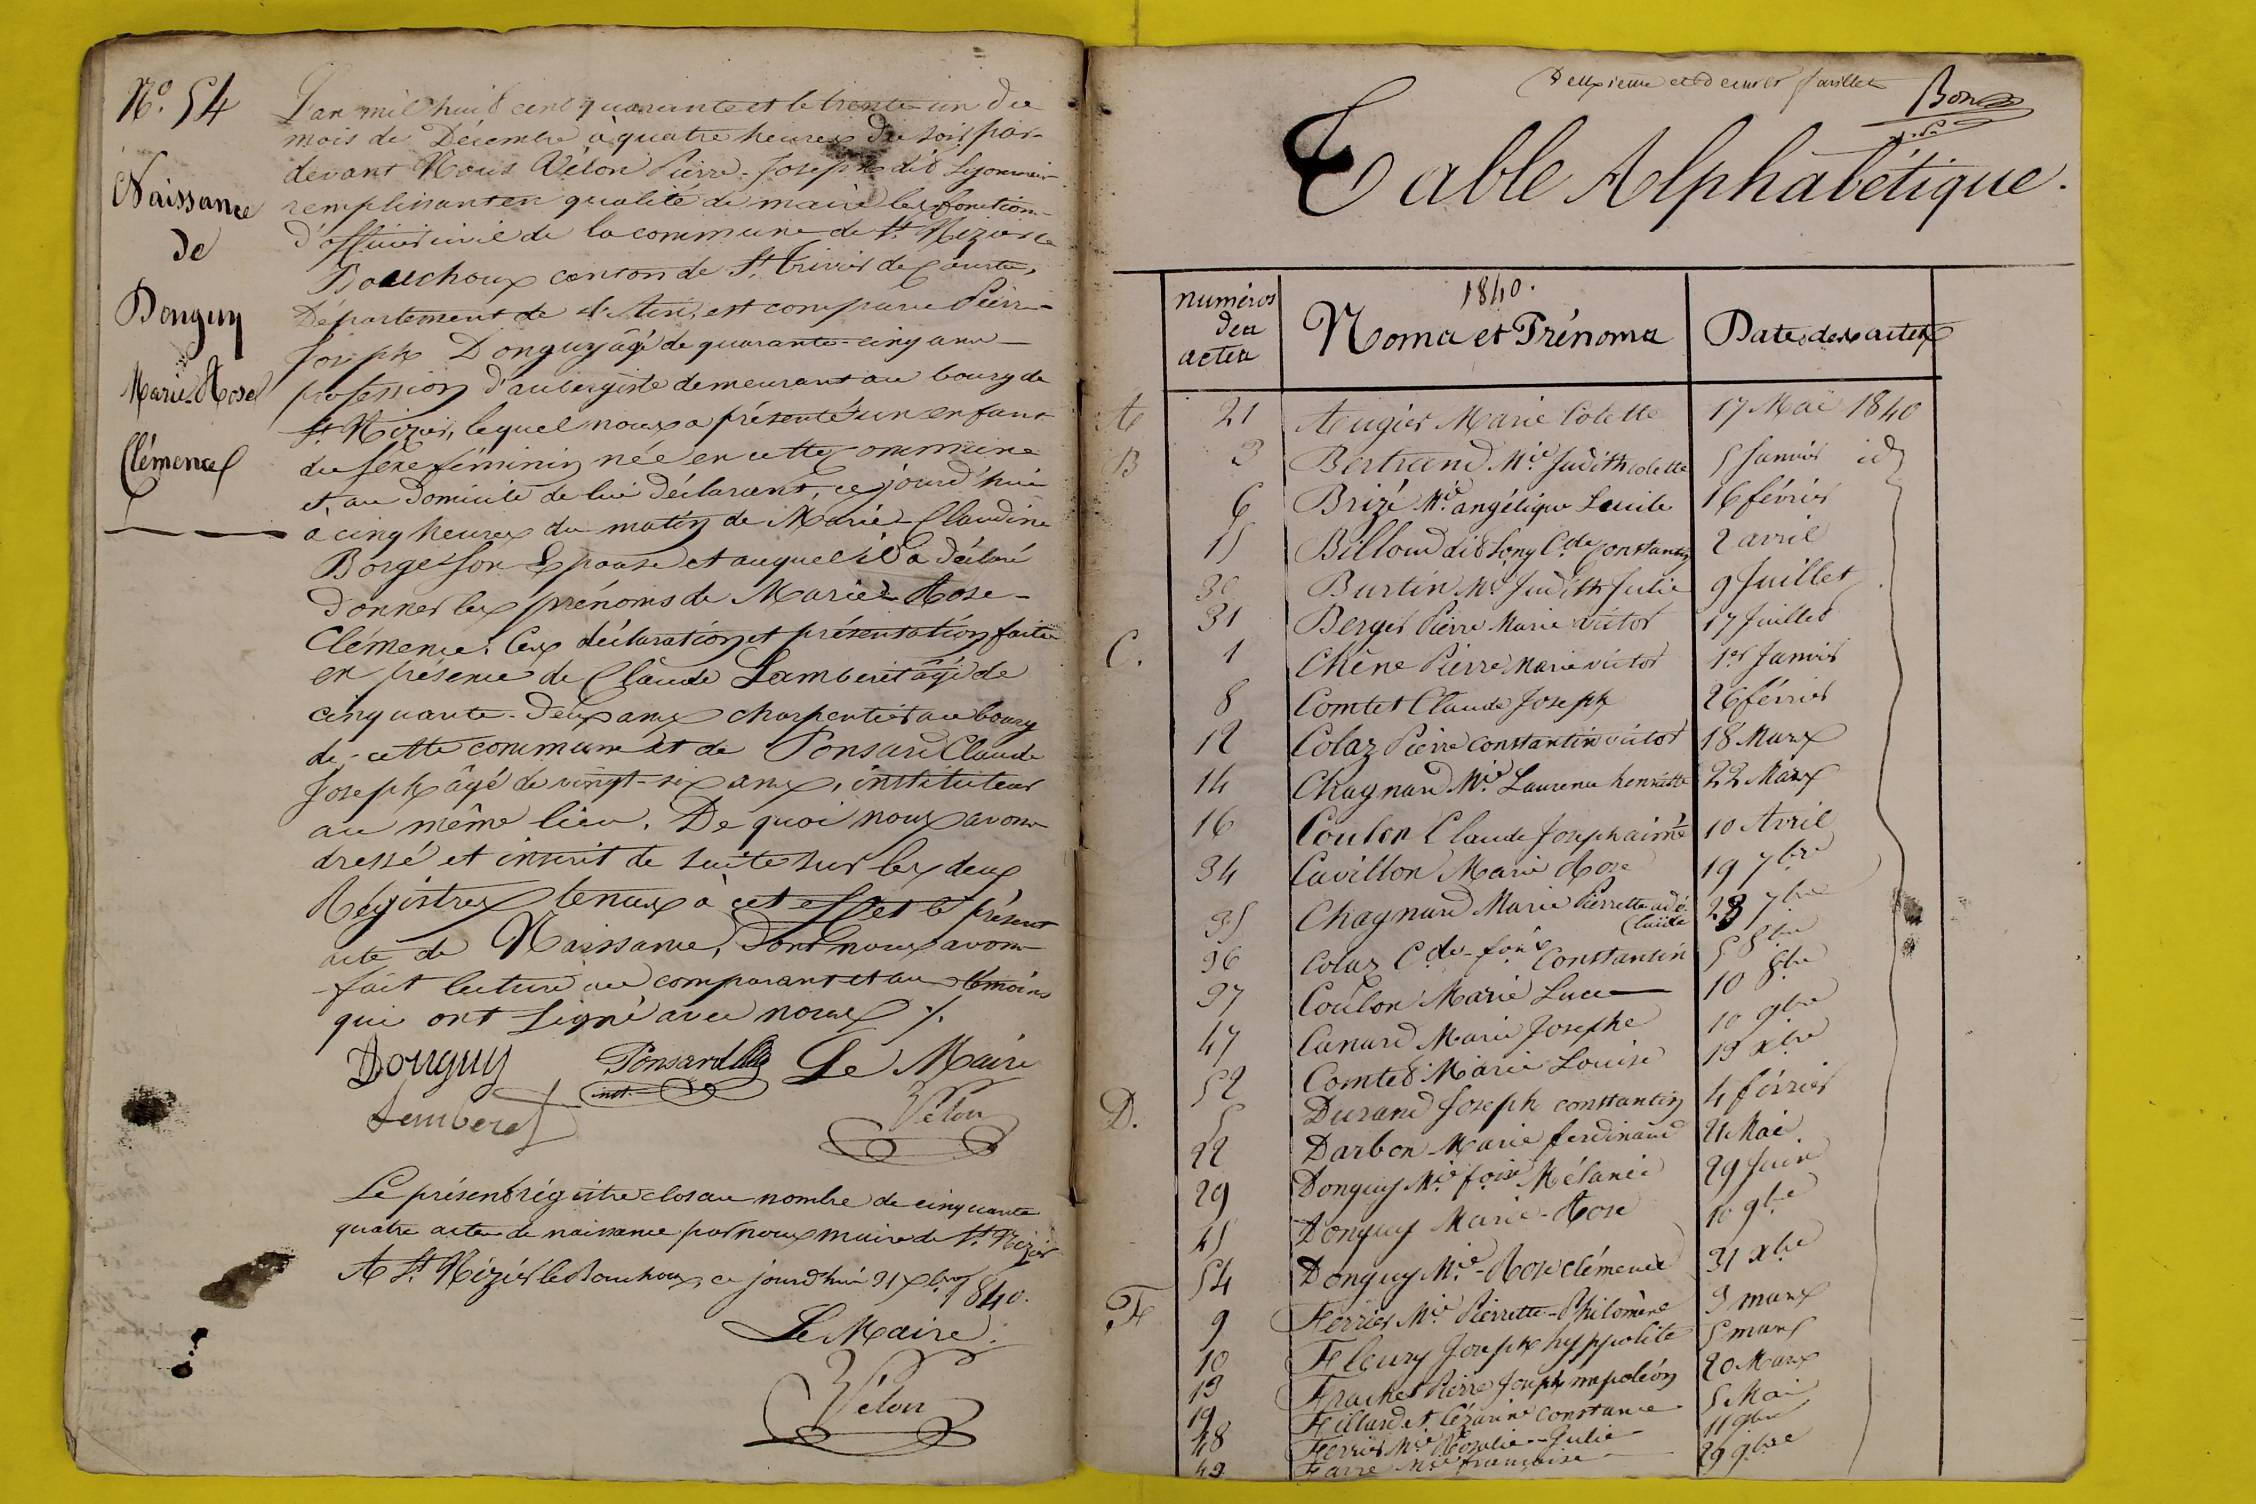 N.o 54
Naissance
de
Donguy
Marie-Rose
Clémence
L'an mil huit cent quarante et le trente-un du
mois de Décembre à quatre heures du soir par-
devant Nous Vélon Pierre-Joseph dit Lyonnais
remplissant en qualité de maire les fonctions
d'officier civil de la commune de St. Nizier le
Bouchoux canton de St. Trivier de Courtes,
Département de l'Ain, est comparu Pierre-
Joseph Donguy âgé de quarante-cinq ans
profession d'aubergiste demeurant au bourg de
St. Nizier, lequel nous a présenté un enfant
du sexe féminin née en cette commune
et, au domicile de lui déclarant, ce jourd'hui
à cinq heures du matin de Marie-Claudine
Borges son Epouse et auquel il a déclaré
donner les prénoms de Marie-Rose-
Clémence. Ces déclaration et présentation faites
en présence de Claude Lamberet âgé de
cinquante-deux ans charpentier au bourg
de cette commune et de Ponsard Claude
Joseph âgé de vingt-six ans, instituteur
au même lieu. De quoi nous avons
dressé et inscrit de suite sur les deux
Régistres tenus à cet effet le présent
acte de Naissance, dont nous avons
fait lecture au comparant et aux témoins
qui ont signé avec nous ./.
Donguy Ponsard Le Maire
Lamberet inst. Vélon
Le présent régistre clos au nombre de cinquante
quatre actes de naissance par nous maire de St. Nizier
A St. Nizier le Bouchoux, ce jourd'hui 31 xbre 1840.
Le Maire.
Vélon
Deuxième et dernier feuillet
Bon
Table Alphabétique.
numéros des actes 1840. Noms et Prénoms Dates des actes
A 21 Augier Marie Colette 17 Mai 1840
B 3 Bertrand Mie. Judith Colette 5 Janvier id
6 Brizé Mie. angélique Lucile 16 février
15 Billoud dit Long Cde. Constantin 2 avril
30 Burtin Mie Judith Julie 9 Juillet
31 Berger Pierre Marie victor 17 Juillet
C. 1 Chêne Pierre Marie victor 1er Janvier
8 Comtet Claude Joseph 26 février
12 Colaz Pierre constantin victor 18 Mars
14 Chagnard Mie. Laurence henriette 22 Mars
16 Coulon Claude Joseph aimé 10 Avril
34 Cavillon Marie Rose 19 7bre
35 Chagnard Marie Pierrette adélaïde 23 7bre
36 Colaz Cde. fois Constantin 5 8bre
37 Coulon Marie Luce 10 8bre
47 Canard Marie Josephe 10 9bre
52 Comtet Marie Louise 19 xbre
D. 5 Durand Joseph constantin 4 février
22 Darbon Marie ferdinand 21 Mai.
29 Donguy Mie. foise Mélanie 29 Juin
45 Donguy Marie-Rose 10 9bre
54 Donguy Mie.-Rose Clémence 31 xbre
F 9 Ferrier Mie. Pierrette-Philomène 3 mars
10 Fleury Joseph hyppolite 5 mars
13 Frachet Pierre Joseph napoléon 20 Mars
19 Fillardet Cézarine constance 5 Mai
48 Ferrier Mie Rosalie-Julie 11 9bre
49 Farre Mie françoise 29 9bre